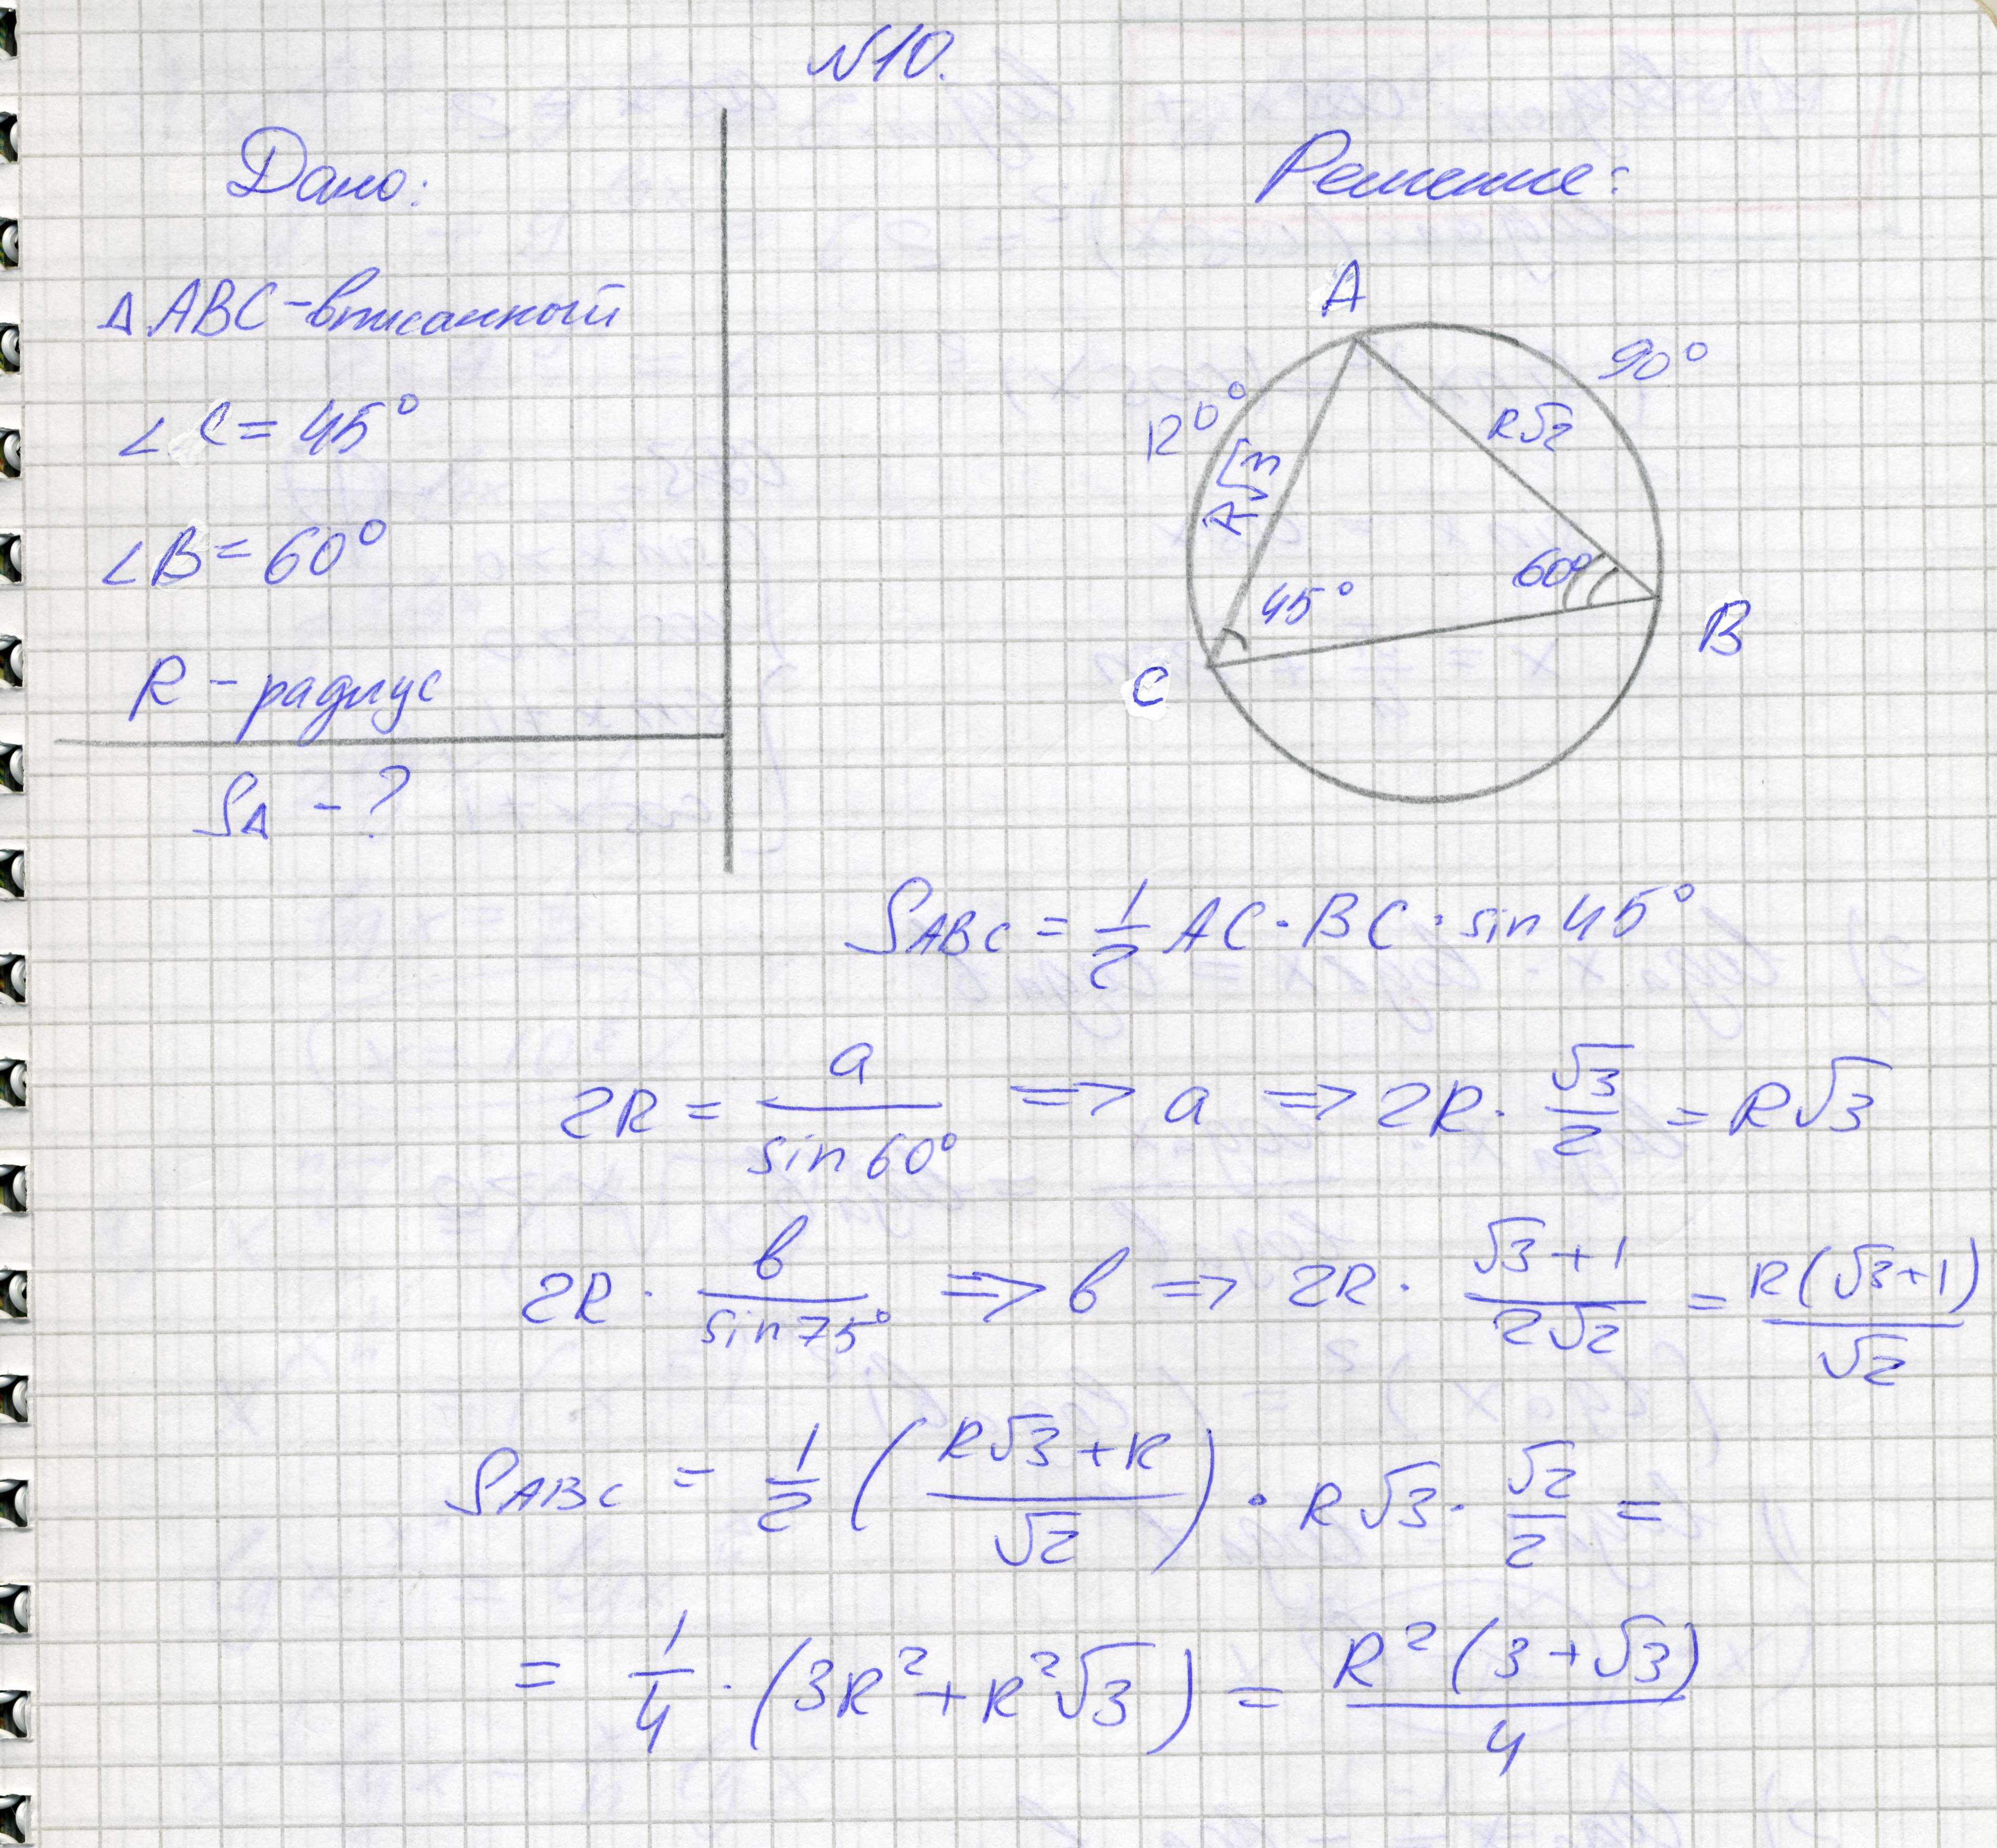 №10.
Дано:
Δ ABC - вписанный
∠ C = 45°
∠B = 60°
R - радиус
SΔ - ?
Решение:
A
90°
120°
R√2
60°
45°
B
C
S ABC = 1/2 AC · BC · sin 45°
2R = a / sin 60° => a => 2R · √3/2 = R√3
2R · b / sin 75° => b => 2R · (√3+1)/(2√2) = R(√3+1)/√2
S ABC = 1/2 ((R√3+R)/√2) · R√3 · √2/2 =
= 1/4 · (3R² + R²√3) = R²(3+√3)/4